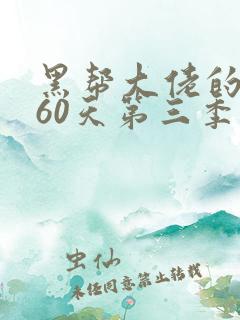 黑帮大佬的
60天第三季
虫仙
未经同意禁止转载